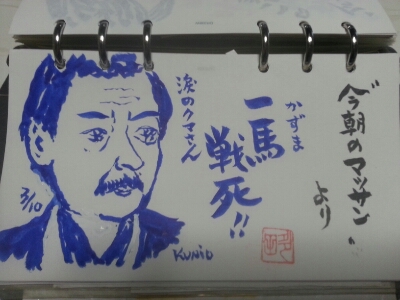 “今朝のマッサン”
より
かずま
一馬
戦死!!
涙のクマさん
3/10
KUNIO